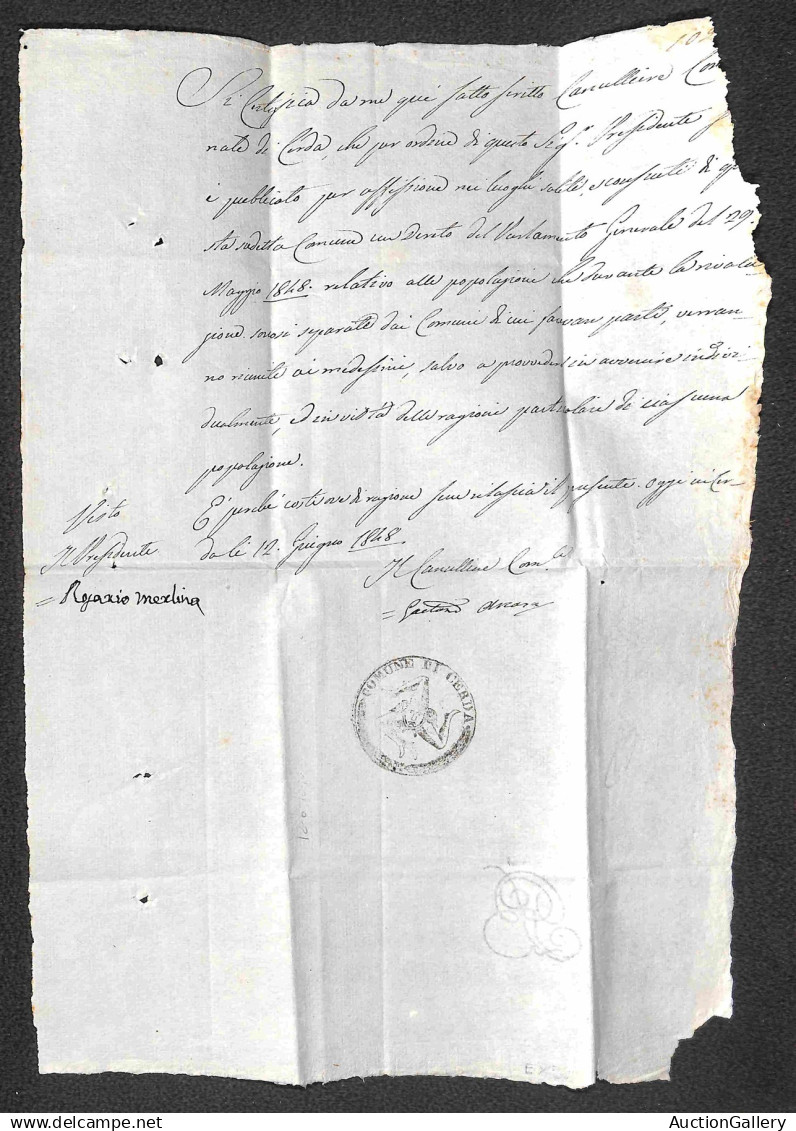 102
Si Certifica da me qui sotto scritto Cancelliere Com
nale di Cerda, che per ordine di questo Sig.r Presidente
è pubblicato per affissione nei luoghi soliti, e consueti di q
sta sudetta Comune un Decreto del Parlamento Generale del 29.
Maggio 1848. relativo alle popolazioni che durante la rivolu
zione sonosi separate dai Comuni di cui facevan parte, verran
no riunite ai medesimi, salvo a provvedersi in avvenire indivi
dualmente, ed in vista delle ragioni particolare di ciascuna
popolazione.
E perché costi ove di ragione se ne rilascia il presente. Oggi in Cer
da li 12. Giugno 1848.
Visto
Il Presidente
= Rosario Merlina
Il Cancelliere Com.le
= Gaetano
COMUNE DI CERDA
AuctionGallery